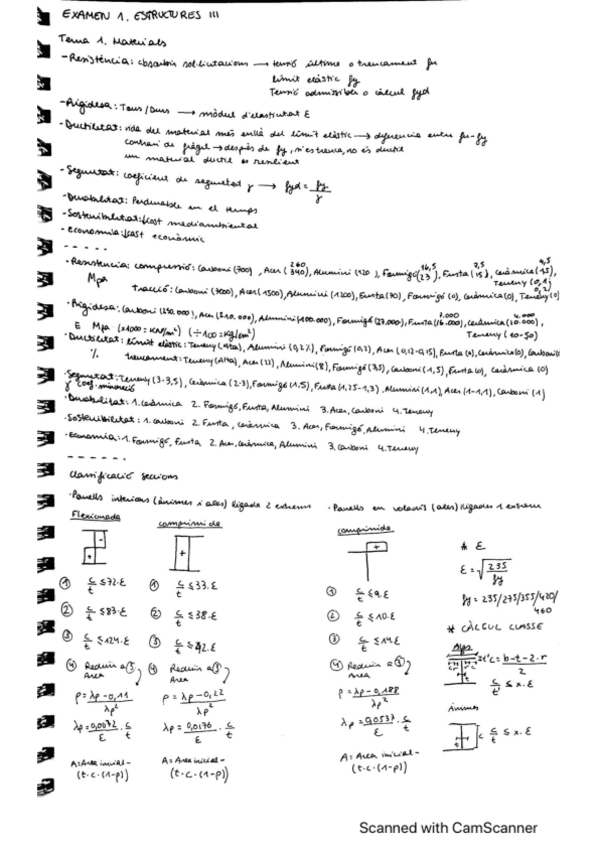 EXAMEN 1. ESTRUCTURES III
Tema 1. Materials
- Resistència: absorbir sol·licitacions → tensió última o trencament fu
límit elàstic fy
Tensió admissible o càlcul fyd
- Rigidesa: Tous/Durs → mòdul d'elasticitat E
- Ductilitat: vida del material més enllà del límit elàstic → diferencia entre fu-fy
contrari de fràgil → després de fy, si es trenca, no és ductil
un material ductil es resilient
- Seguretat: coeficient de seguretat γ → fyd = fy/γ
- Durabilitat: Perdurable en el temps
- Sostenibilitat: cost mediambiental
- economia: cost econòmic
- - - - -
· Resistencia: compressió: Carboni (700), Acer (340) 260, Alumini (120), Formigó (23) 16,5, Fusta (15) 7,5, Ceràmica (15) 4,5,
Mpa Terreny (0,1)
tracció: Carboni (3000), Acer (1500), Alumini (1200), Fusta (70), Formigó (0), Ceràmica (0), Terreny (0)
· Rigidesa: Carboni (250.000), Acer (210.000), Alumini (100.000), Formigó (27.000), Fusta (16.000) 7.000, Ceràmica (10.000) 4.000,
E Mpa (x1000 = KN/m²) (÷100 = kg/cm²) Terreny (10-50)
· Ductilitat: límit elàstic: Terreny (Alta), Alumini (0,2%), Formigó (0,2), Acer (0,12-0,15), Fusta (0), Ceràmica (0), Carboni
% trencament: Terreny (Alta), Acer (22), Alumini (8), Formigó (3,5), Carboni (1,5), Fusta (0), Ceràmica (0)
· Seguretat: Terreny (3-3,5), Ceràmica (2-3), Formigó (1,5), Fusta (1,25-1,3), Alumini (1,1), Acer (1-1,1), Carboni (1)
γ coef. minoració
· Durabilitat: 1. Ceràmica 2. Formigó, Fusta, Alumini 3. Acer, Carboni 4. Terreny
· Sostenibilitat: 1. Carboni 2. Fusta, Ceràmica 3. Acer, Formigó, Alumini 4. Terreny
· Economia: 1. Formigó, Fusta 2. Acer, Ceràmica, Alumini 3. Carboni 4. Terreny
- - - - - -
Classificació seccions
· Panells interiors (ànimes i ales) lligada 2 extrems · Panells en voladís (ales) lligades 1 extrem
Flexionada comprimida comprimida
- + + +
① c/t ≤ 72·ε ① c/t ≤ 33·ε ① c/t ≤ 9·ε
② c/t ≤ 83·ε ② c/t ≤ 38·ε ② c/t ≤ 10·ε
③ c/t ≤ 124·ε ③ c/t ≤ 42·ε ③ c/t ≤ 14·ε
④ Reduir a ③ ④ Reduir a ③ ④ Reduir a ③
Area Area Area
ρ = λp - 0,11 / λp² ρ = λp - 0,22 / λp² ρ = λp - 0,188 / λp²
λp = 0,0072/ε · c/t λp = 0,0176/ε · c/t λp = 0,0537/ε · c/t
A = Area inicial - A = Area inicial - A = Area inicial -
(t·c·(1-ρ)) (t·c·(1-ρ)) (t·c·(1-ρ))
* ε
ε = √235/fy
fy = 235/275/355/420/
460
* CÀLCUL CLASSE
Ales
c = b-t-2·r / 2
c/t ≤ x·ε
Ànimes
c/t ≤ x·ε
Scanned with CamScanner